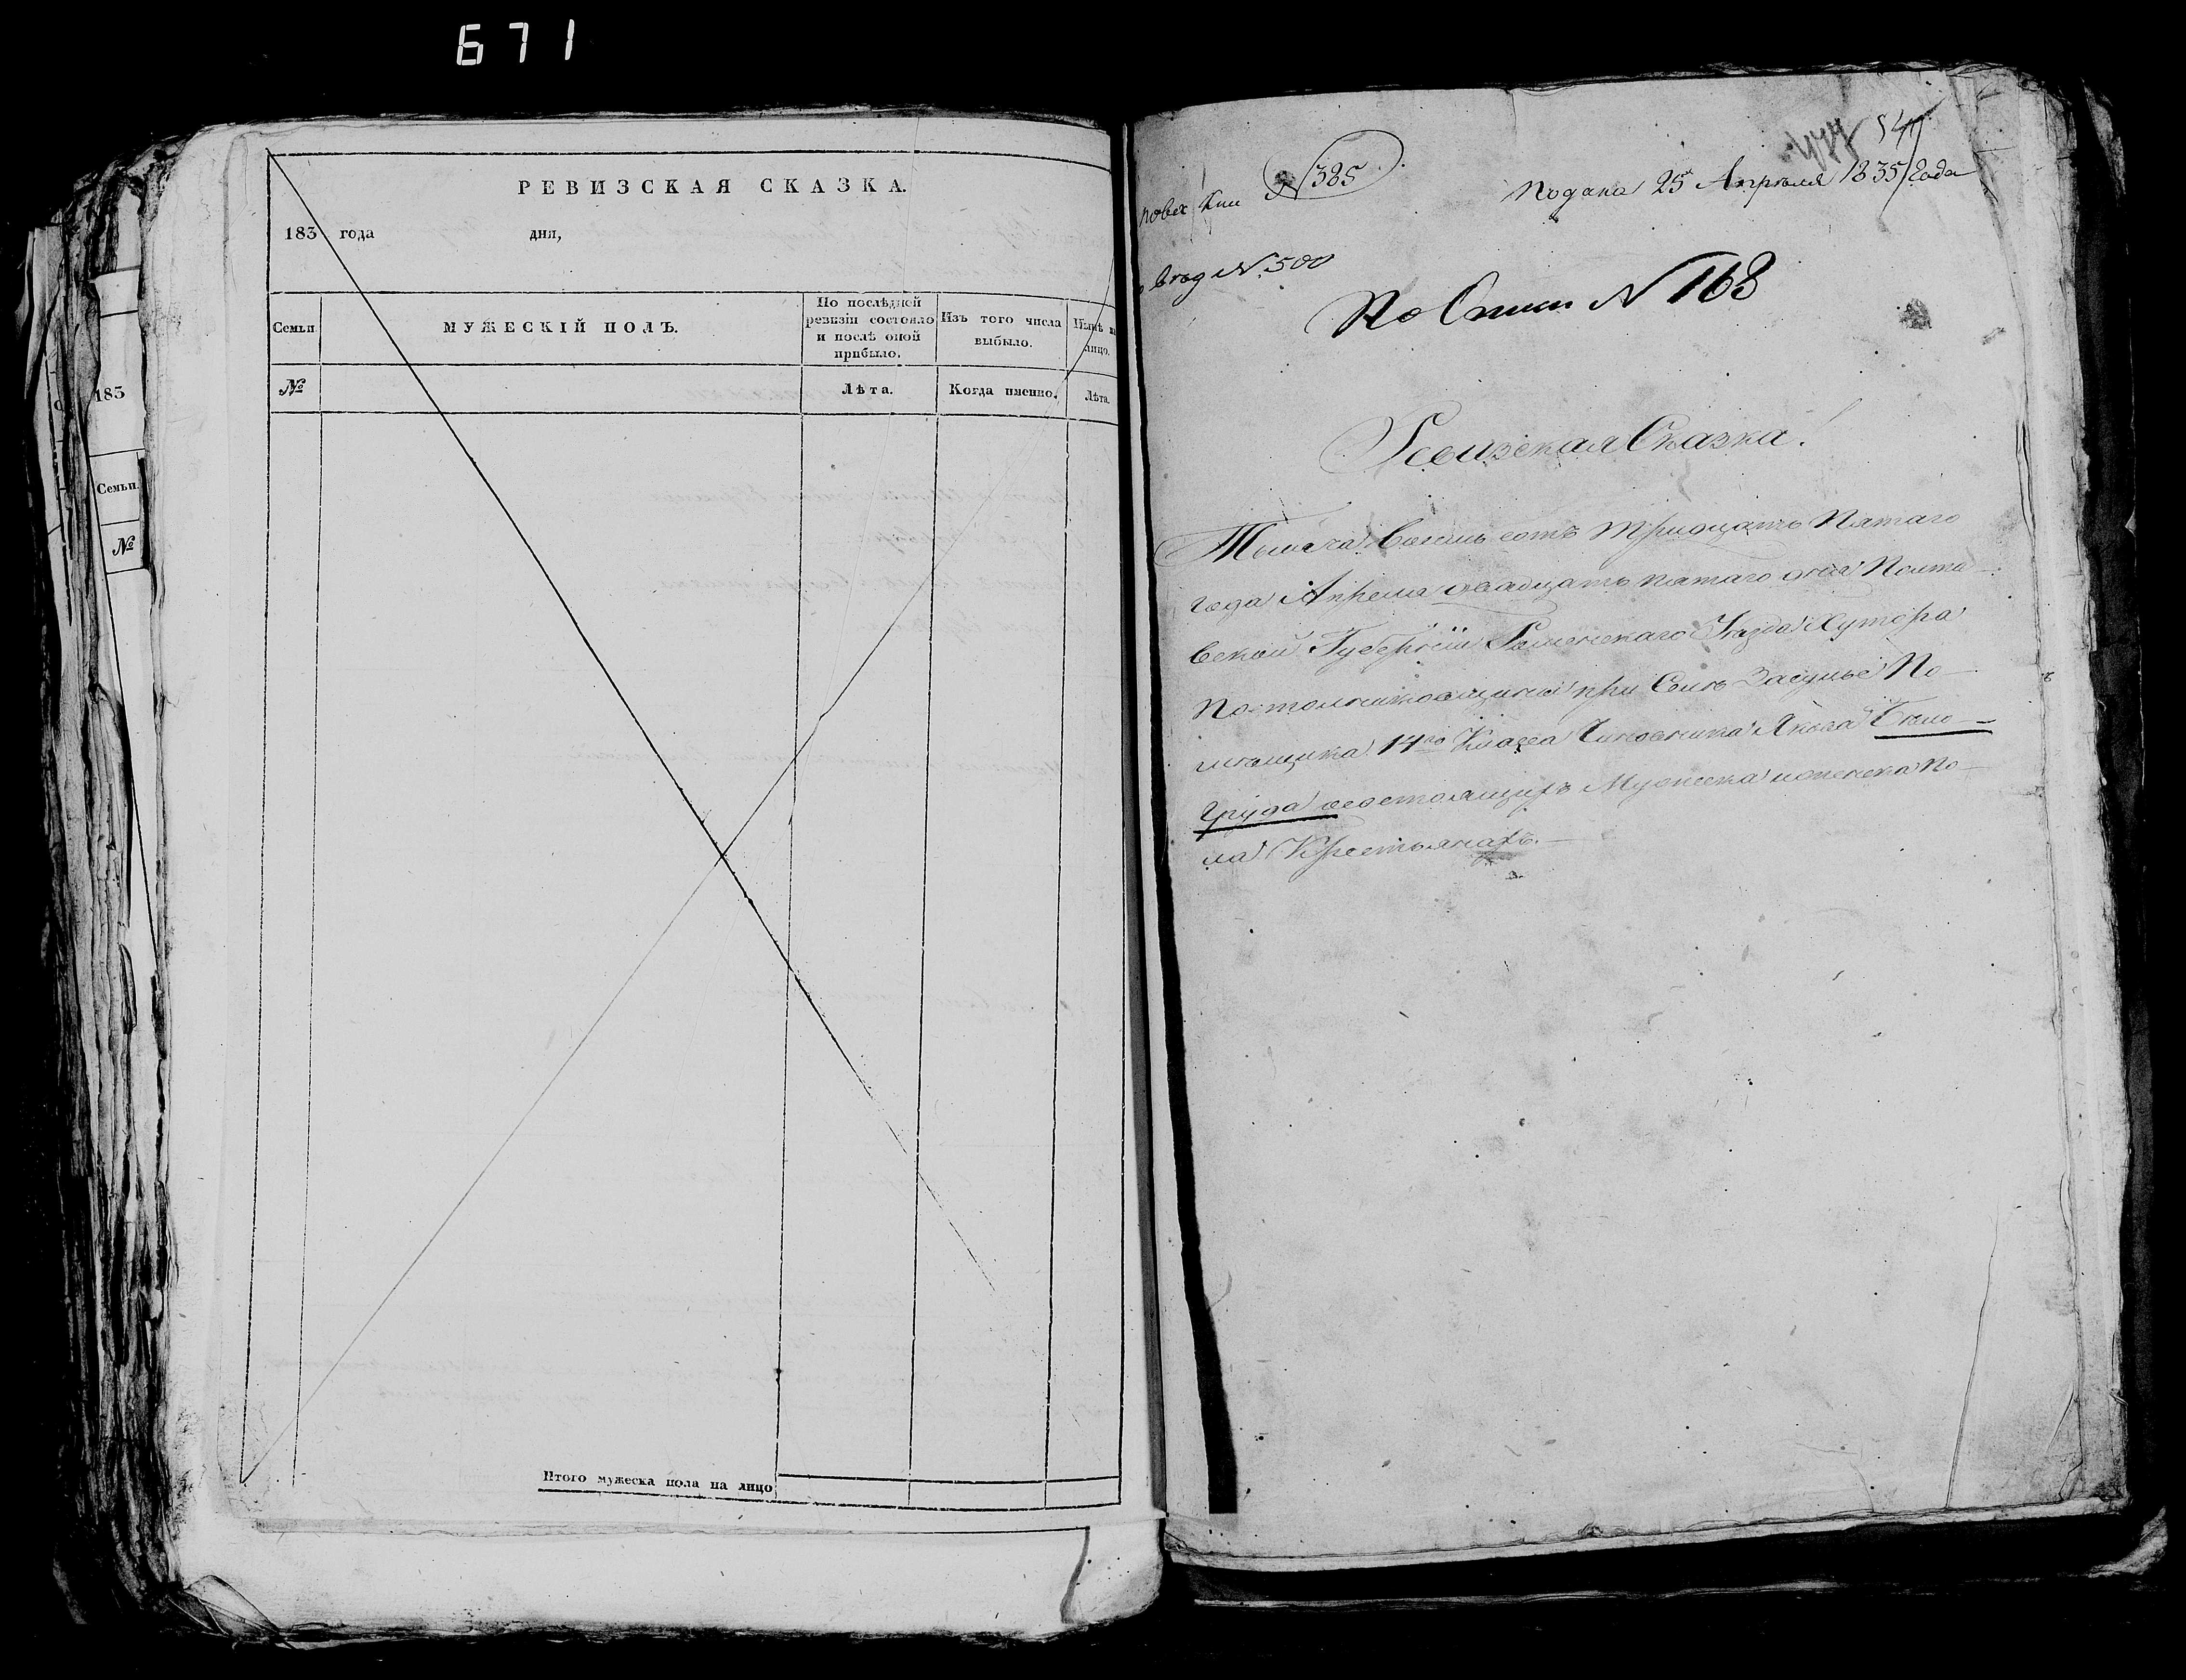 671
РЕВИЗСКАЯ СКАЗКА.
183 года дня,
Семьи
МУЖЕСКІЙ ПОЛЪ.
По послѣдней ревизіи состояло и послѣ оной прибыло.
Изъ того числа выбыло.
Нынѣ на лицо.
№
Лѣта.
Когда именно.
Лѣта.
Итого мужеска пола на лицо
183
Семьи.
№
54
N 385
Подана 25 Апрѣля 1835 Года
N. 500
По N 168
Ревизская Сказка!
Тысяча восемь сотъ тридцать пятаго
года Апреля двадцать пятаго дня Полта-
вской Губерніи Роменскаго Уезда Хутора
при Селѣ Засульѣ По-
мѣщика 14го Класса Чиновника Якова Бѣло-
груда состоящихъ Мужеска и женска по-
ла Крестьянахъ.